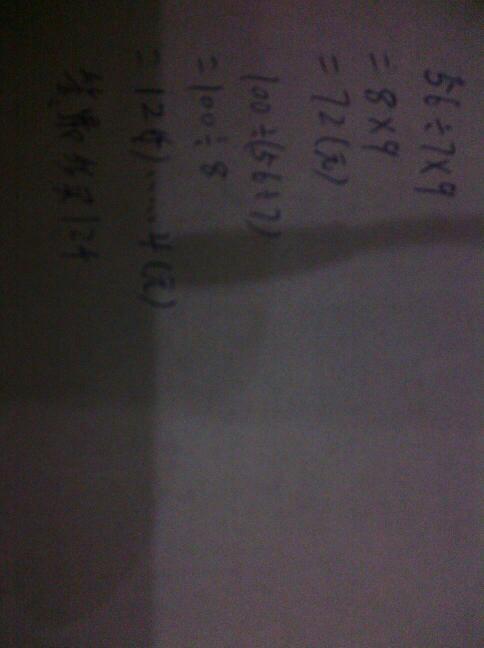 56÷7×9
=8×9
=72(元)
100÷(56÷7)
=100÷8
=12(个)……4(元)
答:最多买12个